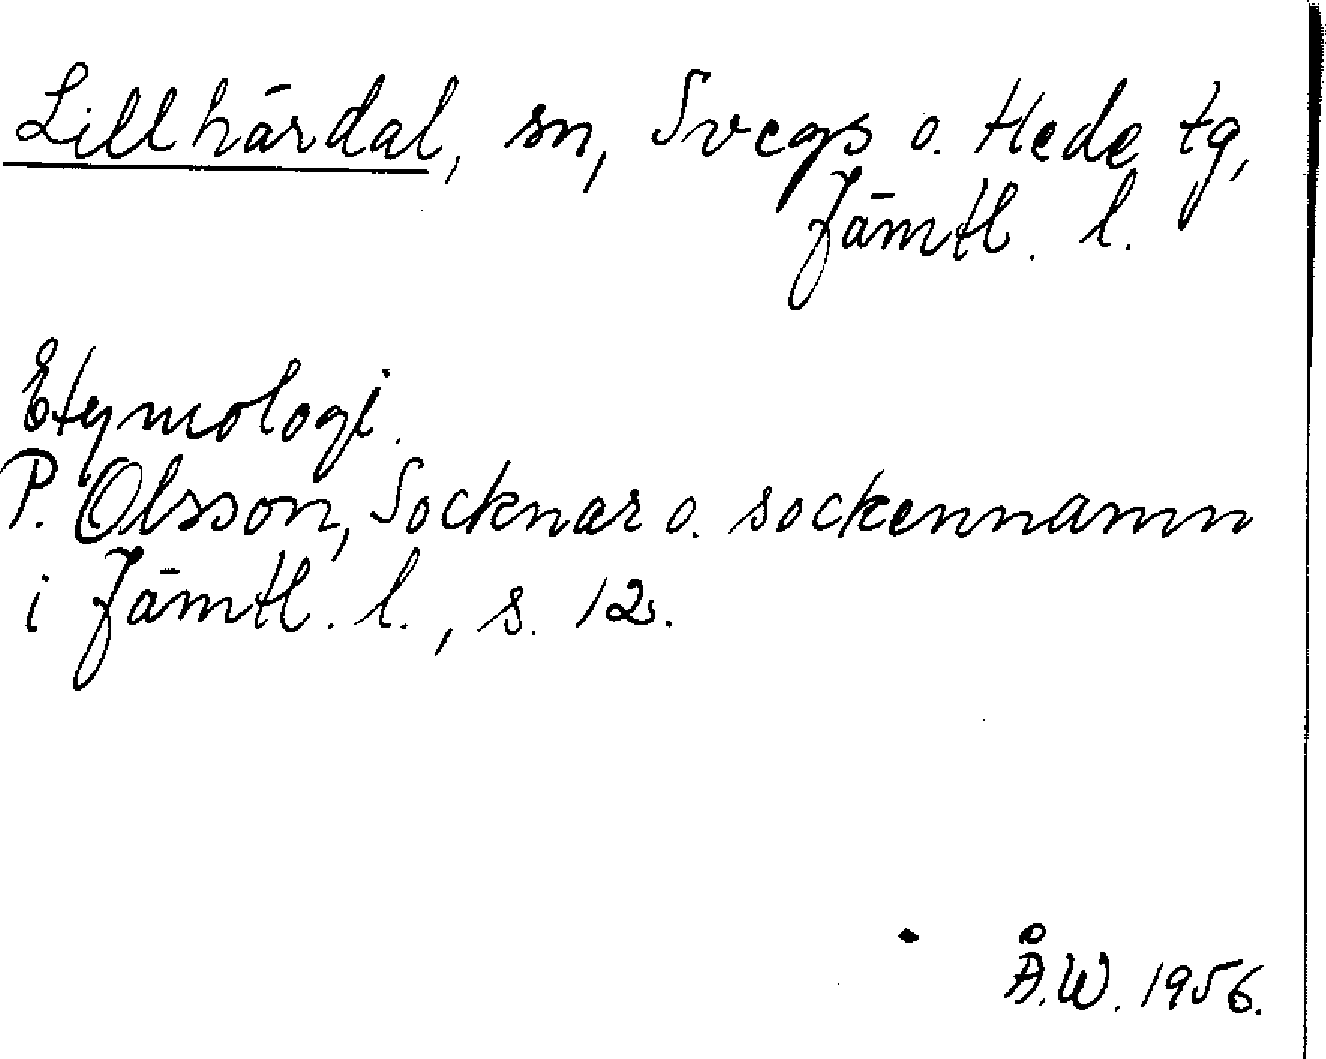 Lillhärdal, sn, Svegs o. Hede tg,
Jämtl. l.
Etymologi.
P. Olsson, Socknar o. sockennamn
i Jämtl. l., s. 12.
Å.W. 1956.